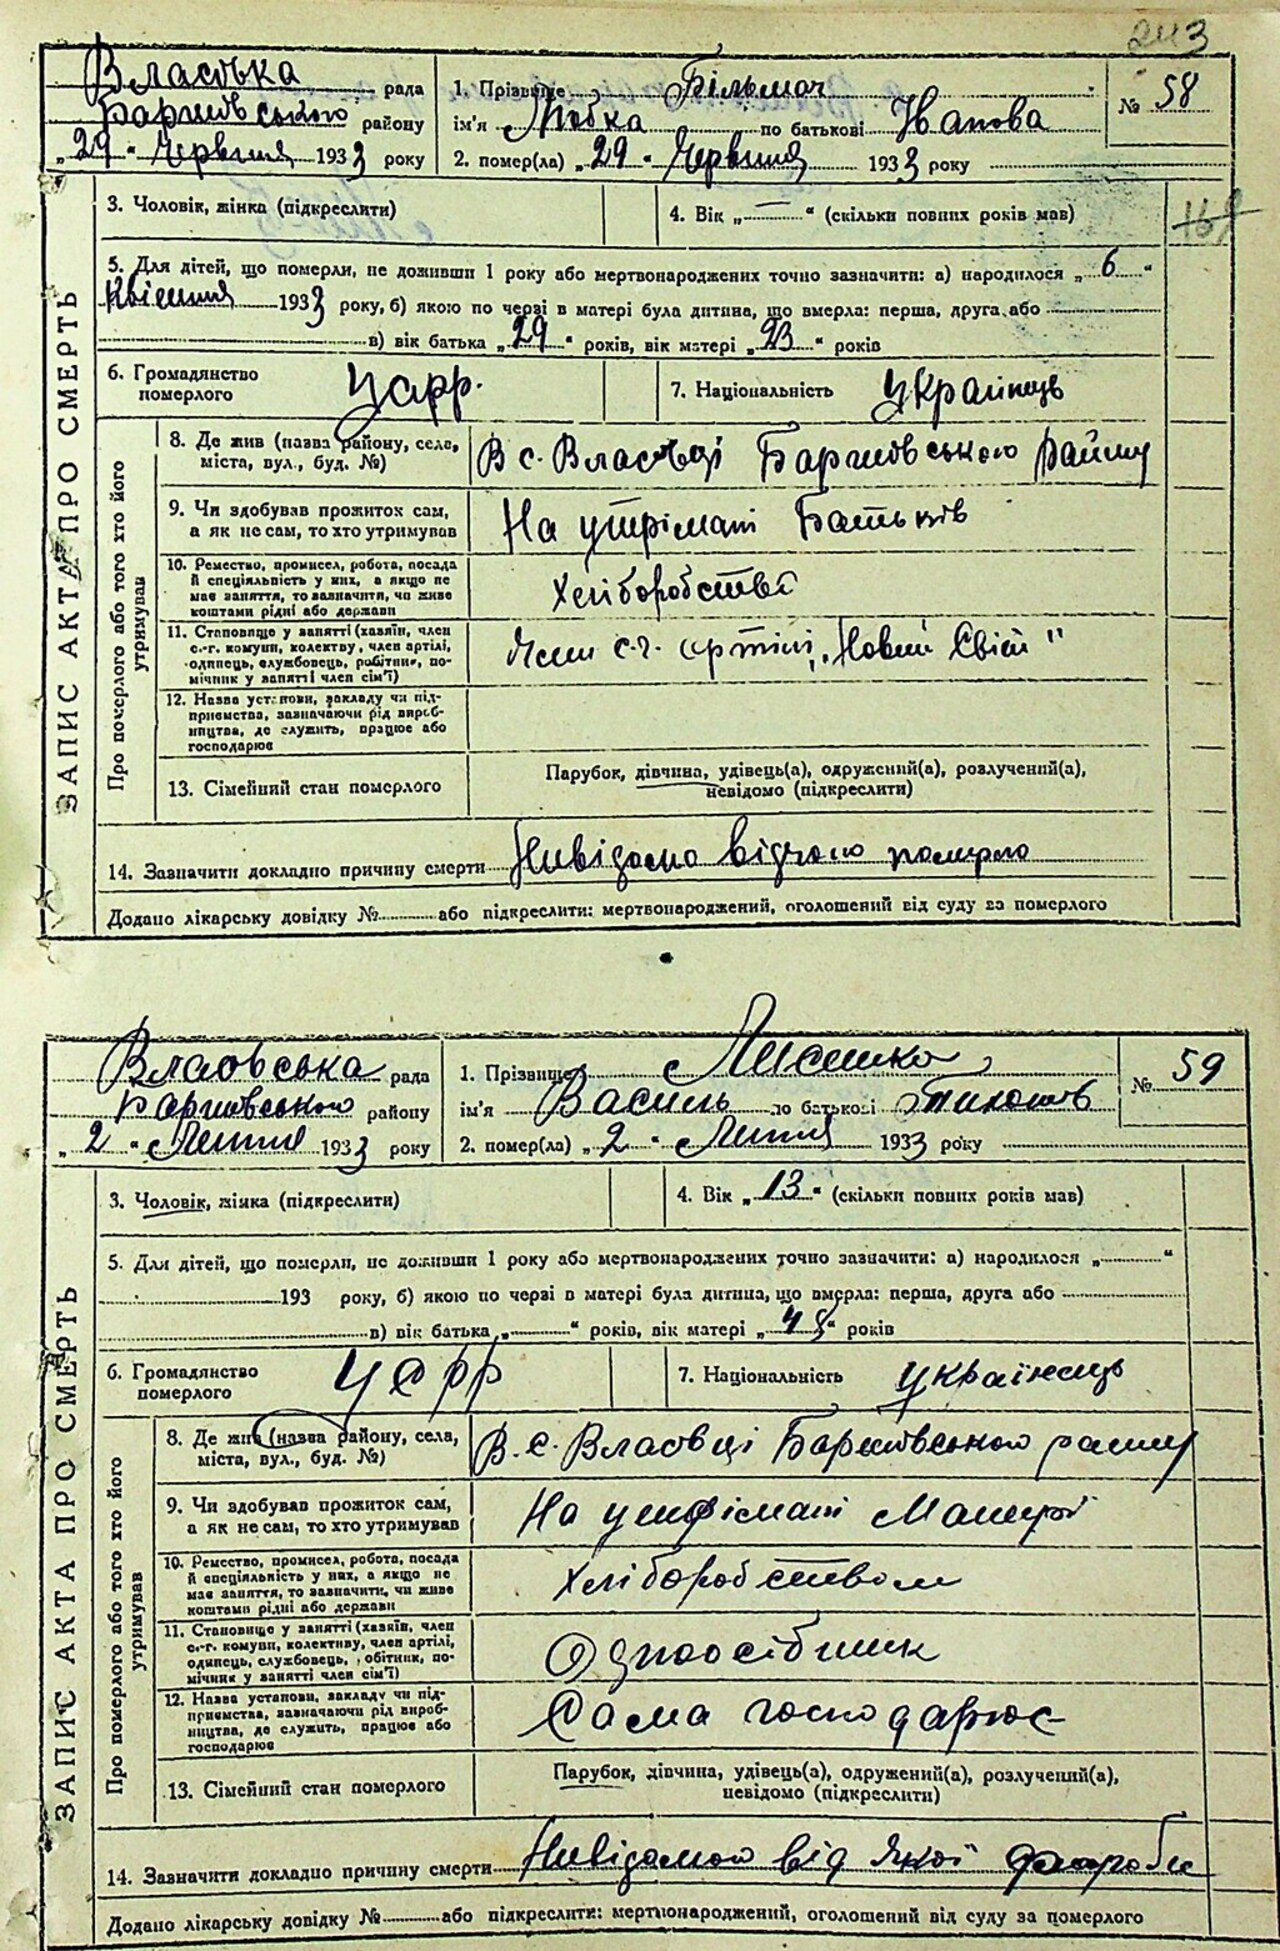 243
Власівка рада
Баришівського району
„29" Червня 1933 року
1. Прізвище Більмач
ім'я Любка по батькові Іванова
2. помер(ла) „29" Червня 1933 року
№ 58
ЗАПИС АКТА ПРО СМЕРТЬ
3. Чоловік, жінка (підкреслити)
4. Вік „—" (скільки повних років мав)
5. Для дітей, що померли, не доживши 1 року або мертвонароджених точно зазначити: а) народилося „6"
Квітня 1933 року, б) якою по черзі в матері була дитина, що вмерла: перша, друга або
в) вік батька „29" років, вік матері „23" років
6. Громадянство померлого
УСРР.
7. Національність Українець
Про померлого або того хто його утримував
8. Де жив (назва району, села,
міста, вул., буд. №)
В с. Власівці Баришівського району
9. Чи здобував прожиток сам,
а як не сам, то хто утримував
На утрімані Батьків
10. Ремество, промисел, робота, посада
й спеціяльність у них, а якщо не
має заняття, то зазначити, чи живе
коштами рідні або держави
Хліборобства
11. Становище у занятті (хазяїн, член
с.-г. комуни, колективу, член артілі,
одинець, службовець, робітник, по-
мічник у занятті член сім'ї)
Член с.г. артілі „Новий Світ"
12. Назва установи, закладу чи під-
приємства, зазначаючи рід вироб-
ництва, де служить, працює або
господарює
13. Сімейний стан померлого
Парубок, дівчина, удівець(а), одружений(а), розлучений(а),
невідомо (підкреслити)
14. Зазначити докладно причину смерти Нивідомо відчого померло
Додано лікарську довідку № або підкреслити: мертвонароджений, оголошений від суду за померлого
Власівська рада
Баришівського району
„2" Липня 1933 року
1. Прізвище Лисенко
ім'я Василь по батькові Тихонов
2. помер(ла) „2" Липня 1933 року
№ 59
ЗАПИС АКТА ПРО СМЕРТЬ
3. Чоловік, жінка (підкреслити)
4. Вік „13" (скільки повних років мав)
5. Для дітей, що померли, не доживши 1 року або мертвонароджених точно зазначити: а) народилося „ "
193 року, б) якою по черзі в матері була дитина, що вмерла: перша, друга або
в) вік батька „ " років, вік матері „48" років
6. Громадянство померлого
УСРР
7. Національність Українець
Про померлого або того хто його утримував
8. Де жив (назва району, села,
міста, вул., буд. №)
В. с. Власівці Баришівського району
9. Чи здобував прожиток сам,
а як не сам, то хто утримував
На утрімані Матері
10. Ремество, промисел, робота, посада
й спеціяльність у них, а якщо не
має заняття, то зазначити, чи живе
коштами рідні або держави
Хліборобством
11. Становище у занятті (хазяїн, член
с.-г. комуни, колективу, член артілі,
одинець, службовець, робітник, по-
мічник у занятті член сім'ї)
Одноосібник
12. Назва установи, закладу чи під-
приємства, зазначаючи рід вироб-
ництва, де служить, працює або
господарює
Сама господарює
13. Сімейний стан померлого
Парубок, дівчина, удівець(а), одружений(а), розлучений(а),
невідомо (підкреслити)
14. Зазначити докладно причину смерти Нивідомою від Якої хвороби
Додано лікарську довідку № або підкреслити: мертвонароджений, оголошений від суду за померлого